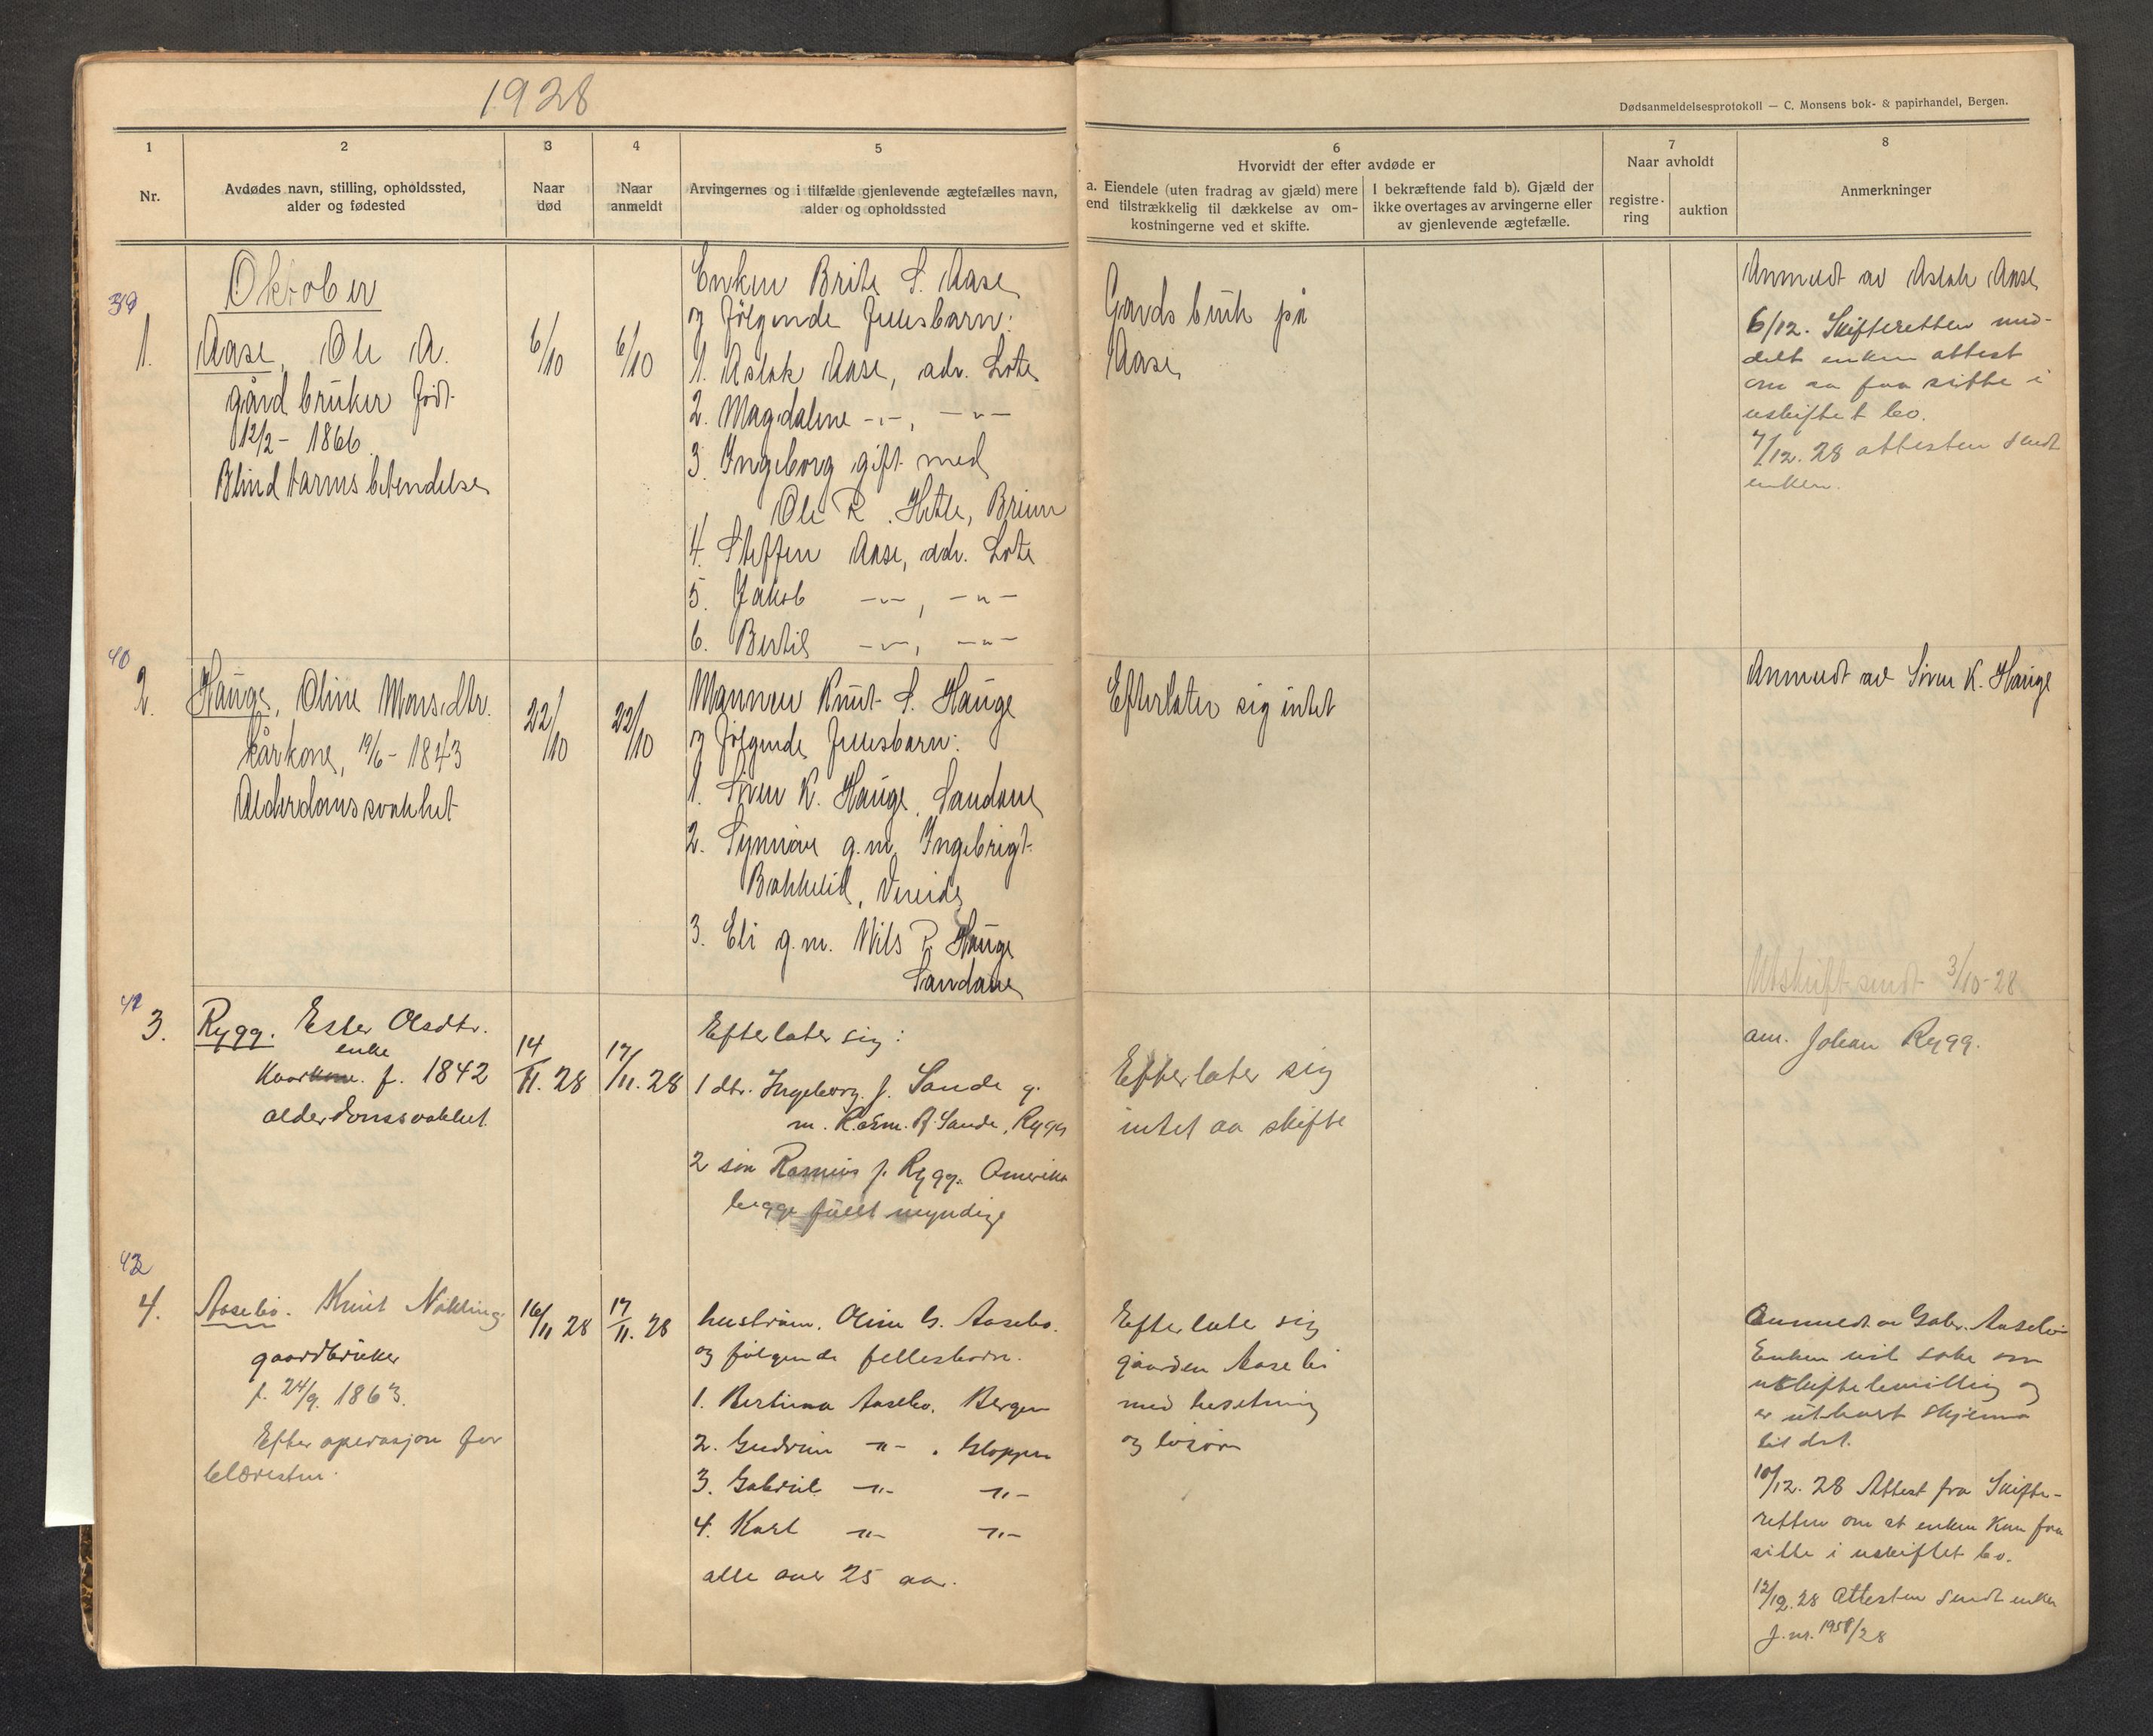 1928
Dødsanmeldelsesprotokoll — C. Monsens bok- & papirhandel, Bergen.
1
Nr.
2
Avdødes navn, stilling, opholdssted,
alder og fødested
3
Naar
død
4
Naar
anmeldt
5
Arvingernes og i tilfælde gjenlevende ægtefælles navn,
alder og opholdssted
6
Hvorvidt der efter avdøde er
a. Eiendele (uten fradrag av gjæld) mere
end tilstrækkelig til dækkelse av om-
kostningerne ved et skifte.
I bekræftende fald b). Gjæld der
ikke overtages av arvingerne eller
av gjenlevende ægtefælle.
7
Naar avholdt
registre-
ring
auktion
8
Anmerkninger
Oktober
39
1.
Aase, Ole A.
gårdbruker født
12/2 - 1866
Blindtarmsbetendelse
6/10
6/10
Enken Brite S. Aase
og følgende fellesbarn:
1. Aslak Aase, adr. Lote
2. Magdalene -"-, -"-
3. Ingeborg gift med
Ole R. Hetle, Breim
4. Steffen Aase, adr. Lote
5. Jakob -"-, -"-
6. Bertil -"-, -"-
Gardsbruk på
Aase
Anmeldt av Aslak Aase
6/12. Skifteretten med-
delt enken attest
om aa faa sitte i
uskiftet bo.
7/12. 28 attesten sendt
enken.
40
2.
Hauge, Oline Monsdtr.
kårkone, 19/6 - 1843
Alderdomssvakhet
22/10
22/10
Mannen Knut S. Hauge
og følgende fellesbarn:
1. Siver K. Hauge, Sandane
2. Synnöve g.m. Ingebrigt
Bakkelid, Vereide
3. Eli g.m. Nils P. Hauge
Sandane
Efterlater sig intet
Anmeldt av Siver K. Hauge
Utskrift sendt 3/10-28
41
3.
Rygg. Ester Olsdtr.
enke
Kaarkone. f. 1842
alderdomssvakhet
14/11. 28
17/11. 28
Efterlater sig:
1 dtr. Ingeborg J. Sande g.
m. Rasm. R. Sande, Rygg
2 søn Rasmus J. Rygg. Amerika
begge fullt myndige
Efterlater sig
intet aa skifte
am. Johan Rygg.
42
4.
Aasebø. Knut
gaardbruker
f. 24/9. 1863.
Efter operasjon for
blæresten.
16/11 28
17/11. 28
hustruen. Oline G. Aasebø.
og følgende fellesbarn.
1. Bertina Aasebø. Bergen
2. Gudrun -"- . Gloppen
3. Gabriel -"- -"-
4. Karl -"- -"-
alle over 25 aar.
Efterlate sig
gaarden Aasebø
med besetning
og løsøre
Anmeldt av Gabr. Aasebø
Enken vil søke om
uskiftebevilling og
er utlevert skjema
til det.
10/12. 28 Attest fra Skifte-
retten om at enken kan faa
sitte i uskiftet bo.
12/12. 28 Attesten sendt enken
J.nr. 1958/28